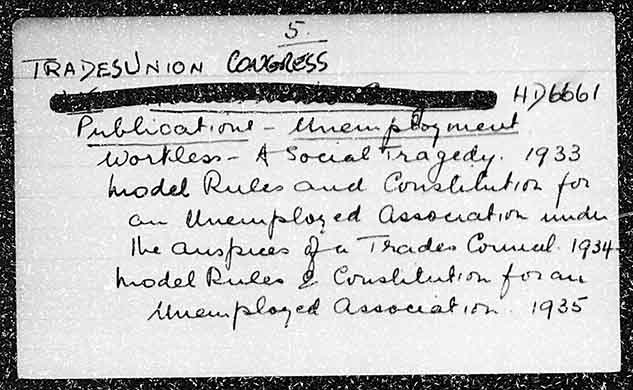 5.
TRADES UNION CONGRESS
HD6661
Publications - Unemployment
Workless - A Social Tragedy. 1933
Model Rules and Constitution for
an Unemployed Association under
the auspices of a Trades Council. 1934
Model Rules & Constitution for an
Unemployed Association. 1935